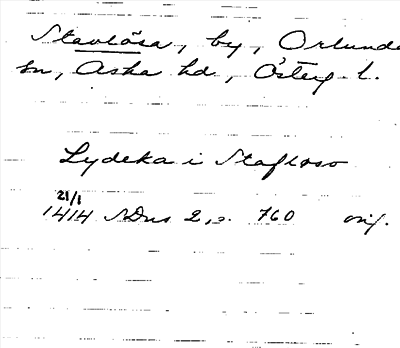 Stavlösa, by, Orlunda
sn, Aska hd, Österg. l.
Lydeka i Stafløso
21/1
1414 SDns 2, s. 760 orig.